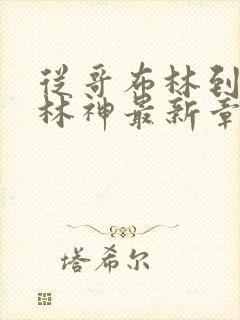 从哥布林到
林神最新章
塔希尔